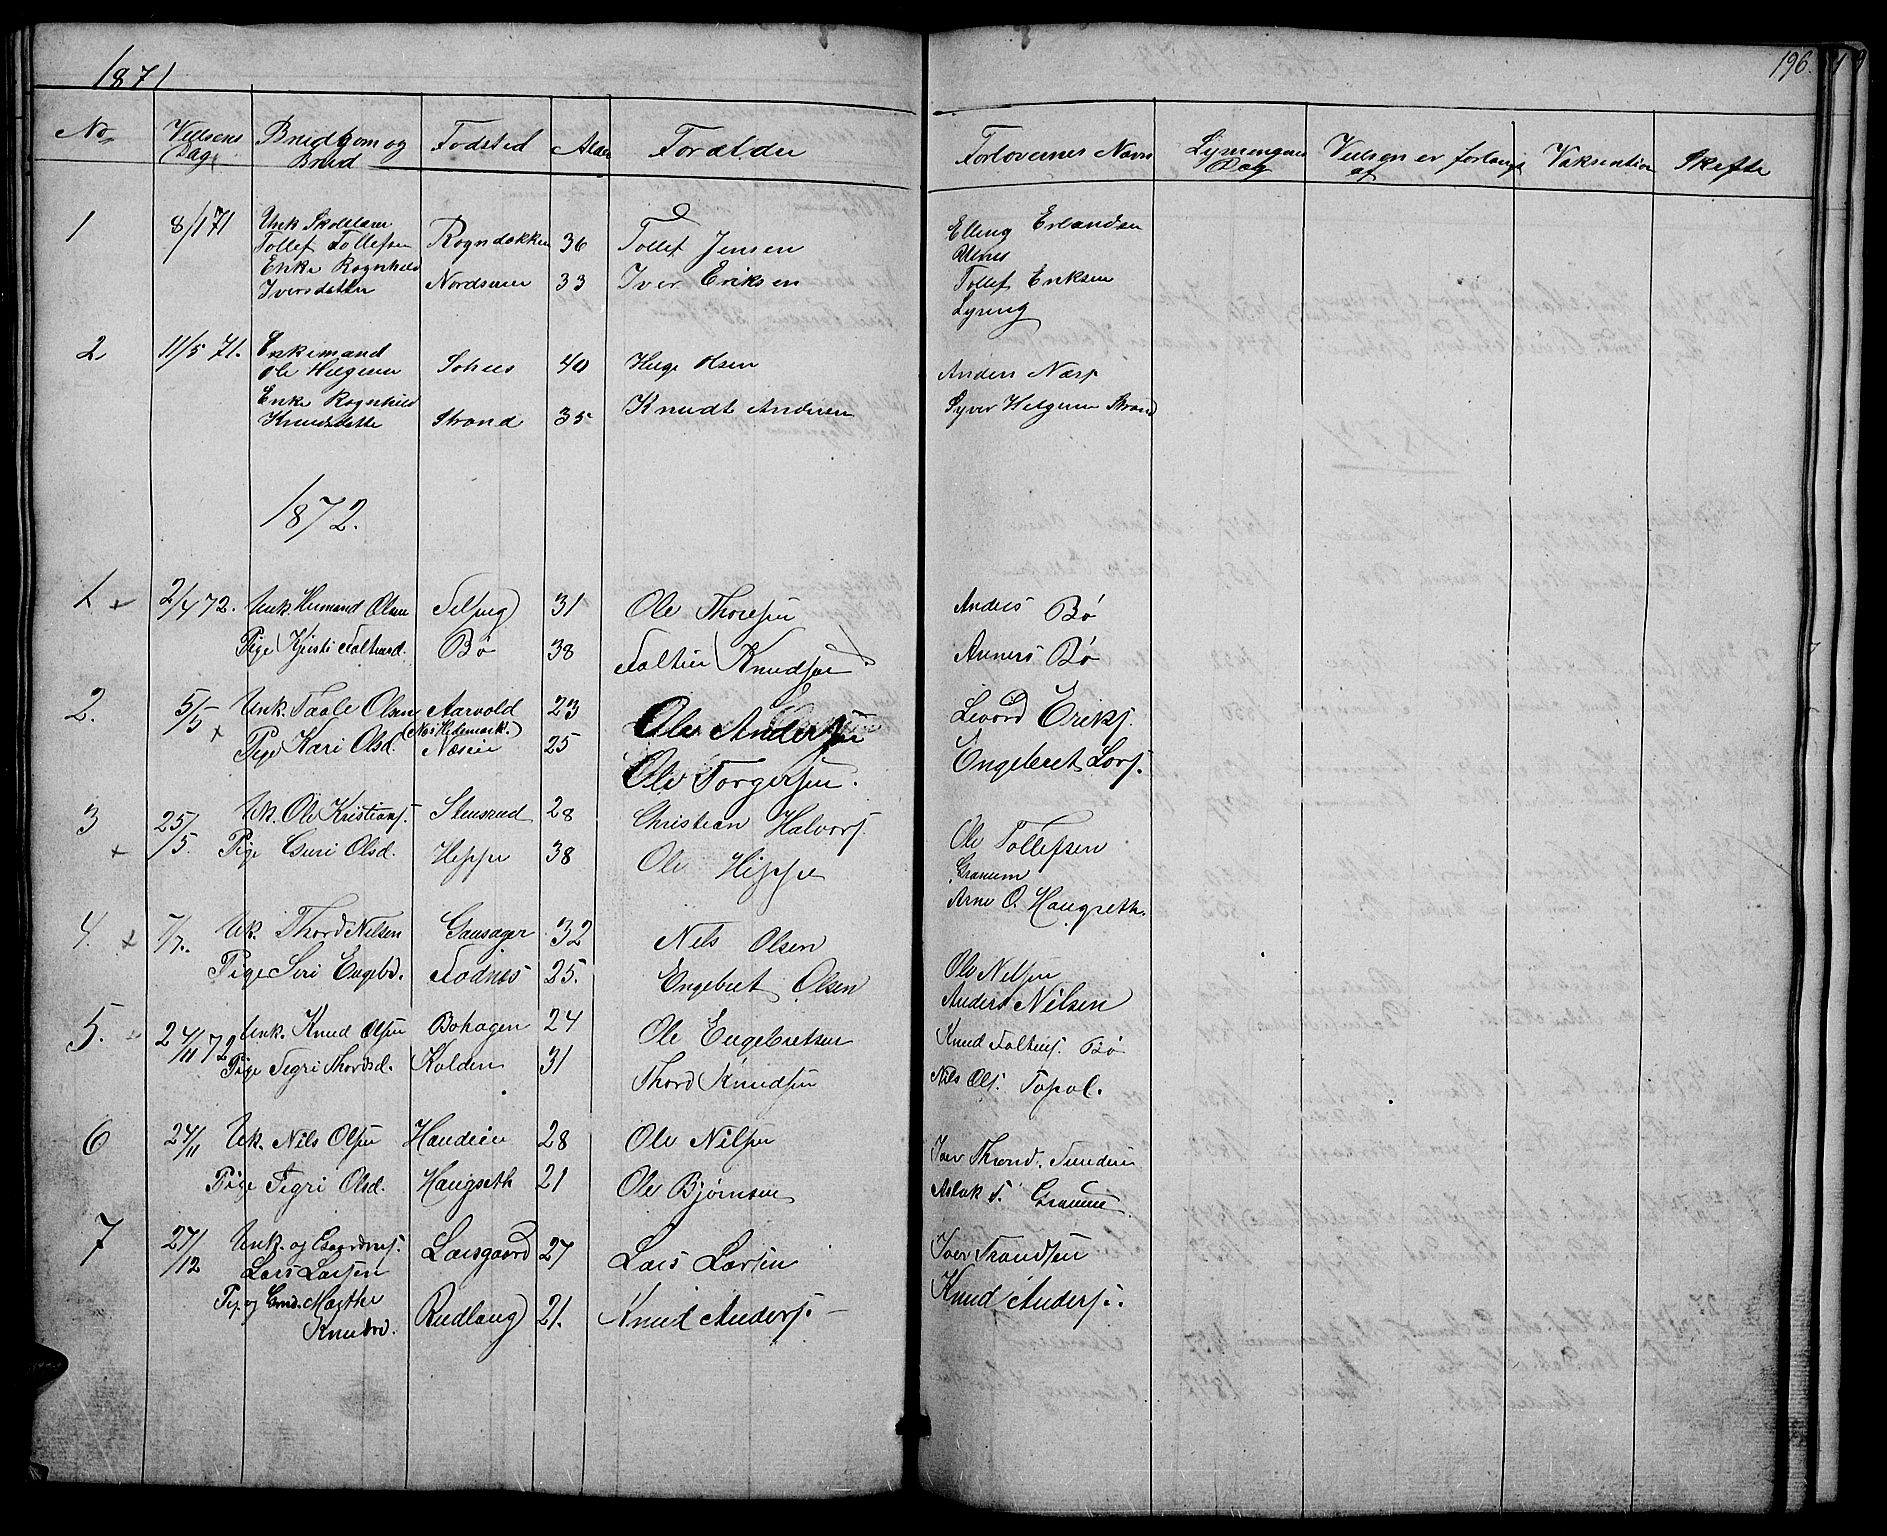 1871
196.
No Vielsens Brudgom og Fodsted Alder Forældre Forlovernes Navne Lysningens Vielsen er forlangt Vaksination Skifte
Dag Brud Dag af
1 8/1 71 Unk Skolelærer
Tollef Tollefsen Rogndokken 36 Tollef Jensen Elling Erlandsen
Ulnes
Enke Rognhild
Iversdatter Nordsveen 33 Iver Eriksen Tollef Eriksen
Lysing
2 11/5 71. Enkemand
Ole Helgesen 40 Helge Olsen Anders
Enke Rognhild
Knudsdatte Strand 35 Knudt Andersen Syver Helgesen Strand
1872.
1 2/4 72. Unk. Olsen 31 Ole Thoresen Anders Bø
Pige Kjersti Bø 38 Knudsen Bø
2. 5/5 Unk. Olsen Aarvold 23 Ole Andersen Eriks.
(Næs Hedemark.)
Pige Kari Olsd. 25 Ole Torgersen. Engebret Lars.
3 25/5. Uk. Ole Kristians. Stensrud 28 Christian Halvors. Ole Tollefsen
Granum
Pige Guri Olsd. Hippe 38 Ole Hippe Arne O. Haugseth.
4. 7/7. Uk. Thord Nilsen Gausager 32 Nils Olsen Ole Nilsen
Pige Siri Engebd. Fodnes 25. Engebret Olsen Anders Nilsen
5. 24/11 72 Unk. Knud Olsen Bohagen 24 Ole Engebretsen Knud Bø
Pige Sigri Thordsd. Kolden 31 Thord Knudsen Nils Ols.
6 24/11 Uk. Nils Olsen 28 Ole Nilsen Iver Thrond.
Pige Sigri Olsd. Haugseth 21 Ole Bjørnsen Aslak T. Granum
7 27/12 Unk. og
Lars Larsen Larsgaard 27 Lars Larsen Iver Trondsen
Pig. og Grd. Marthe
Knudsd. Rudlang 21. Knud Anders. Knud Anders.